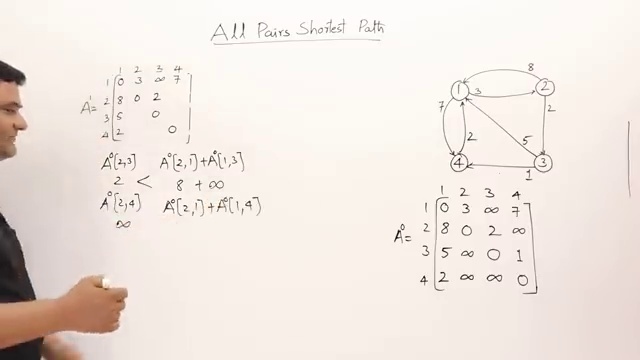 All Pairs Shortest Path
1 2 3 4
1 0 3 ∞ 7
A¹= 2 8 0 2
3 5 0
4 2 0
A⁰[2,3] A⁰[2,1]+A⁰[1,3]
2 < 8 + ∞
A⁰[2,4] A⁰[2,1]+A⁰[1,4]
∞
8
1 3 2
7 2 2
5
4 1 3
1 2 3 4
1 0 3 ∞ 7
A⁰= 2 8 0 2 ∞
3 5 ∞ 0 1
4 2 ∞ ∞ 0